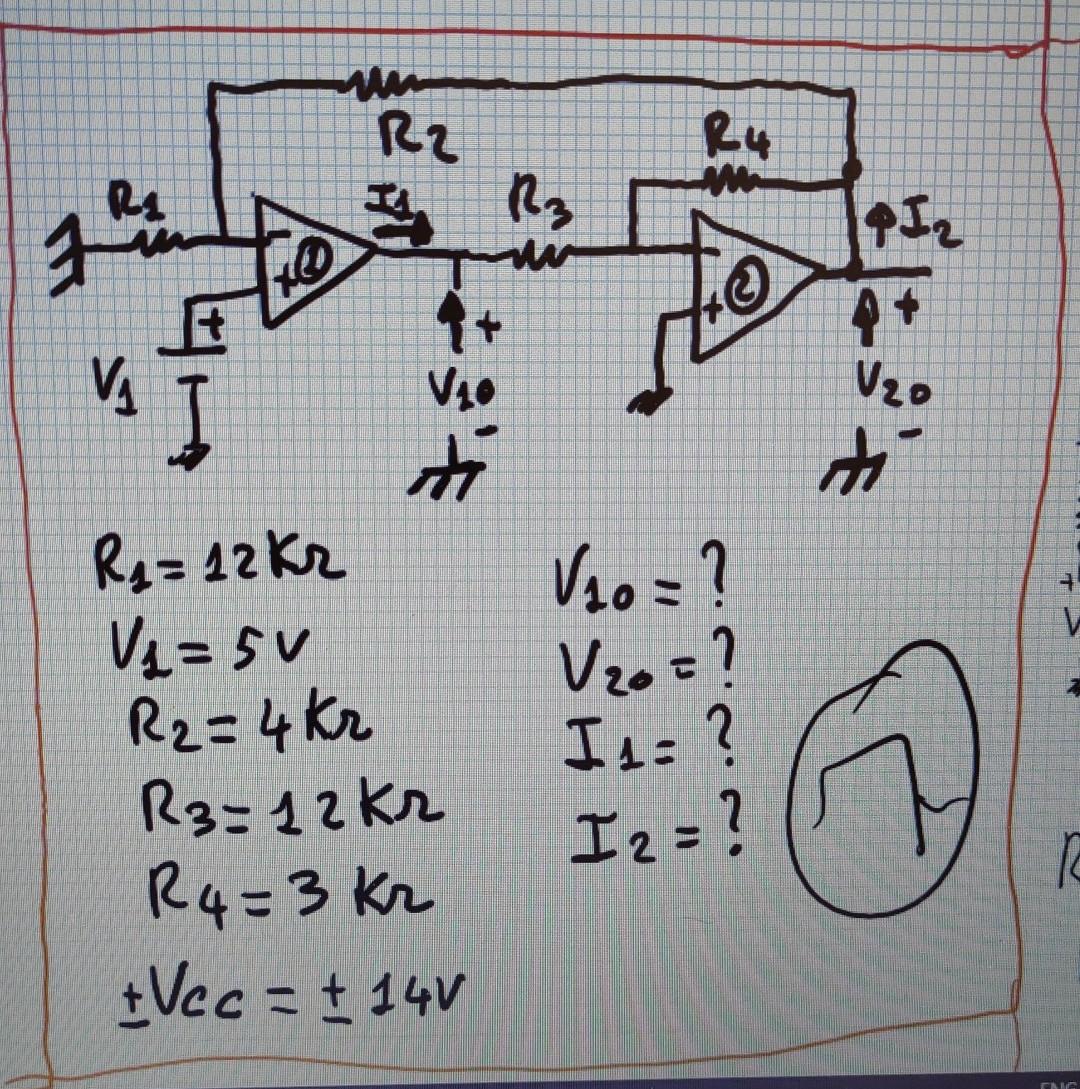 R2
R4
R1
I1
R3
I2
- ① + + - ② +
V1
+
V10
-
+
V20
-
R1 = 12 KΩ
V1 = 5 V
R2 = 4 KΩ
R3 = 12 KΩ
R4 = 3 KΩ
±Vcc = ± 14V
V10 = ?
V20 = ?
I1 = ?
I2 = ?